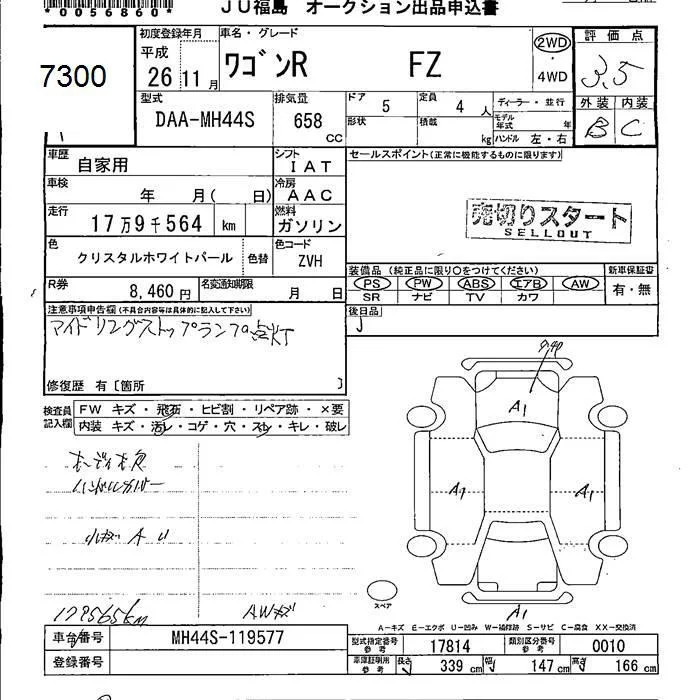 *0056860*
JU福島 オークション出品申込書
7300
初度登録年月
平成
26 11 月
車名・グレード
ワゴンR FZ
2WD
4WD
評価点
3.5
外装 内装
B C
型式
DAA-MH44S
排気量
658
CC
ドア 5
定員 4 人
ディーラー・並行
形状
積載 kg
モデル年式 年
ハンドル 左・右
車歴
自家用
シフト
IAT
セールスポイント(正常に機能するものに限ります)
車検
年 月( 日)
冷房
AAC
売切りスタート
SELLOUT
走行
17万9千564 km
燃料
ガソリン
色
クリスタルホワイトパール
色替
色コード
ZVH
装備品 (純正品に限り○をつけてください)
新車保証書
PS PW ABS エアB AW
有・無
SR ナビ TV カワ
R券
8,460 円
名変通知期限
月 日
注意事項申告欄(不具合内容等は具体的に記入して下さい)
アイドリングストップランプ点灯
後日品
修復歴 有〔箇所 〕
検査員記入欄
FW キズ・飛石・ヒビ割・リペア跡・×要
内装 キズ・汚レ・コゲ・穴・スレ・キレ・破レ
ハンドルカバー
小キズ A U
179565km
AWキズ
A1
A1
A1
A1
スペア
A－キズ E－エクボ U－凹み W－補修跡 S－サビ C－腐食 XX－交換済
車台番号
MH44S-119577
型式指定番号 参考
17814
類別区分番号 参考
0010
登録番号
車庫証明用 参考
長さ 339 cm
幅 147 cm
高さ 166 cm